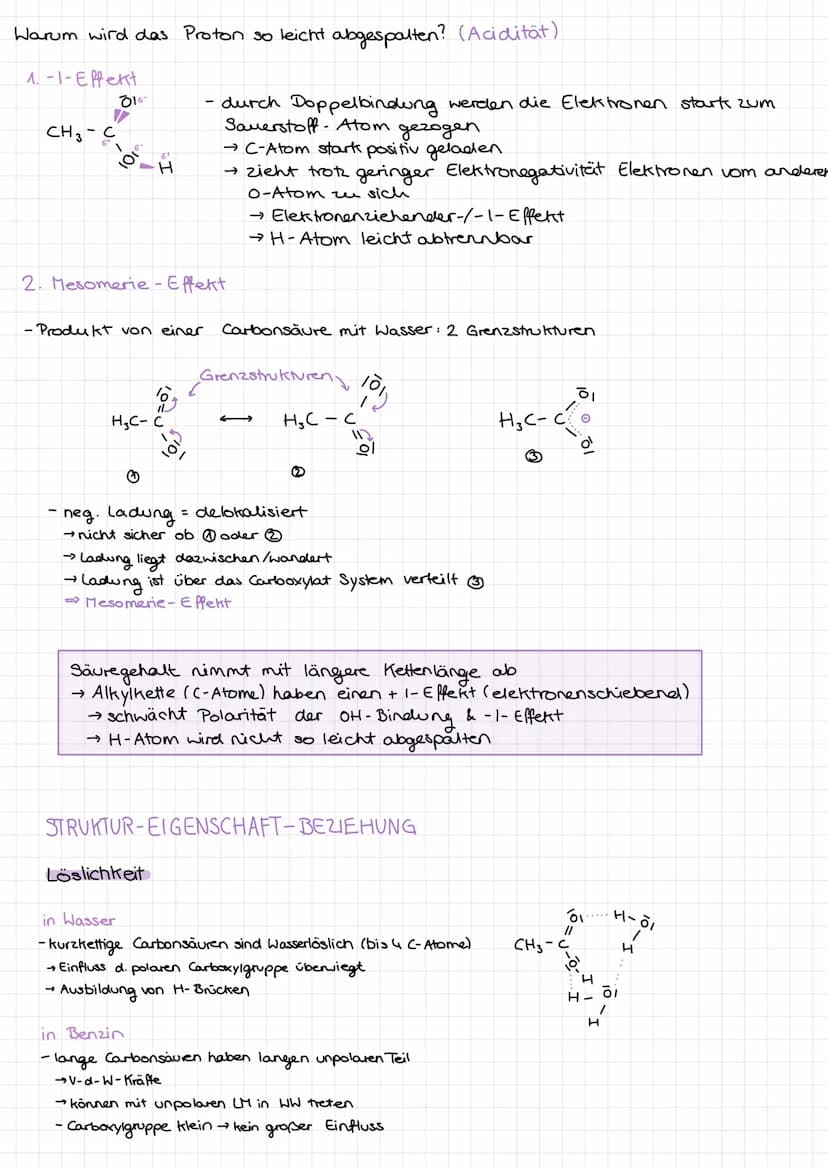 Warum wird das Proton so leicht abgespalten? (Acidität)
1. -I-Effekt
- durch Doppelbindung werden die Elektronen stark zum
Sauerstoff-Atom gezogen
→ C-Atom stark positiv geladen
→ zieht trotz geringer Elektronegativität Elektronen vom anderen
O-Atom zu sich
→ Elektronenziehender-/-I-Effekt
→ H-Atom leicht abtrennbar
O δ-
CH₃ - C
δ+ O δ- δ+
H
2. Mesomerie-Effekt
- Produkt von einer Carbonsäure mit Wasser: 2 Grenzstrukturen
Grenzstrukturen
O O O
H₃C - C ⟷ H₃C - C H₃C - C ⊖
O O O
① ② ③
- neg. Ladung = delokalisiert
→ nicht sicher ob ① oder ②
→ Ladung liegt dazwischen/wandert
→ Ladung ist über das Carboxylat System verteilt ③
⇒ Mesomerie-Effekt
Säuregehalt nimmt mit längere Kettenlänge ab
→ Alkylkette (C-Atome) haben einen + I-Effekt (elektronenschiebend)
→ schwächt Polarität der OH-Bindung & -I-Effekt
→ H-Atom wird nicht so leicht abgespalten
STRUKTUR-EIGENSCHAFT-BEZIEHUNG
Löslichkeit
in Wasser
- kurzkettige Carbonsäuren sind Wasserlöslich (bis 4 C-Atome)
→ Einfluss d. polaren Carboxylgruppe überwiegt
→ Ausbildung von H-Brücken
O H - O
CH₃ - C H
O
H
H - O
H
in Benzin
- lange Carbonsäuen haben langen unpolaren Teil
→ V-d-W-Kräfte
→ können mit unpolaren LM in WW treten
- Carboxylgruppe klein → kein großer Einfluss